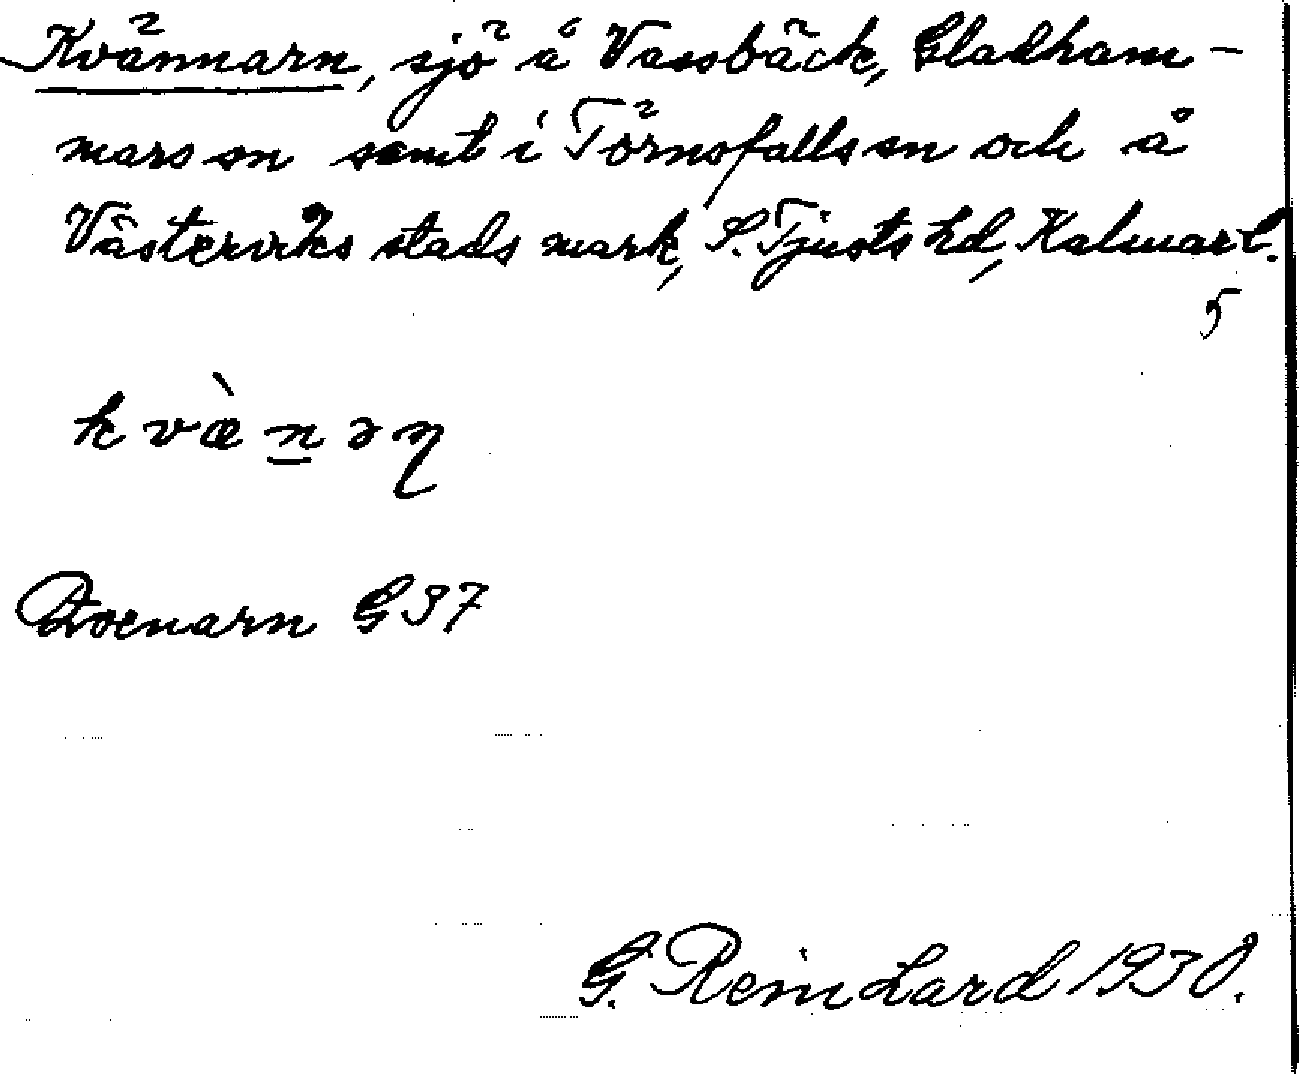 Kvännarn, sjö å Vassbäck, Gladham-
mars sn samt i Törnsfalls sn och å
Västerviks stads mark, S. Tjusts hd, Kalmar l.
5
k v æ̀ n ə ɳ
Qvenarn G 37
G. Reinhard 1930.